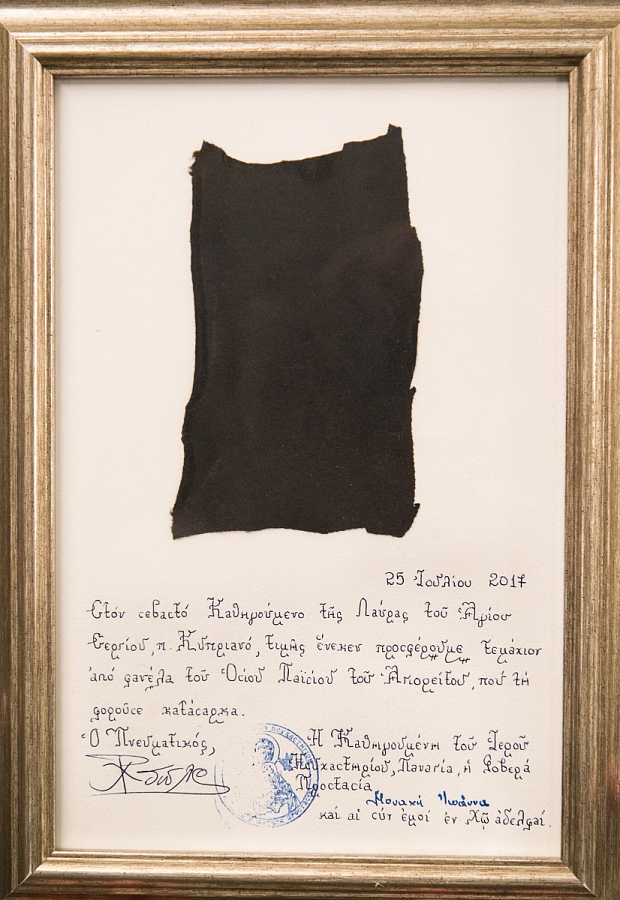 25 Ἰουλίου 2017
Στόν σεβαστό Καθηγούμενο τῆς Λαύρας τοῦ Ἁγίου
Σεργίου, π. Κυπριανό, τιμῆς ἕνεκεν προσφέρουμε τεμάχιον
ἀπό φανέλα τοῦ Ὁσίου Παϊσίου τοῦ Ἁγιορείτου, πού τή
φοροῦσε κατάσαρκα.
Ὁ Πνευματικός,
Ἡ Καθηγουμένη τοῦ Ἱεροῦ
Ἡσυχαστηρίου, Παναγία, ἡ Φοβερά
Προστασία
Μοναχή
καί αἱ σύν ἐμοί ἐν Χῷ ἀδελφαί.